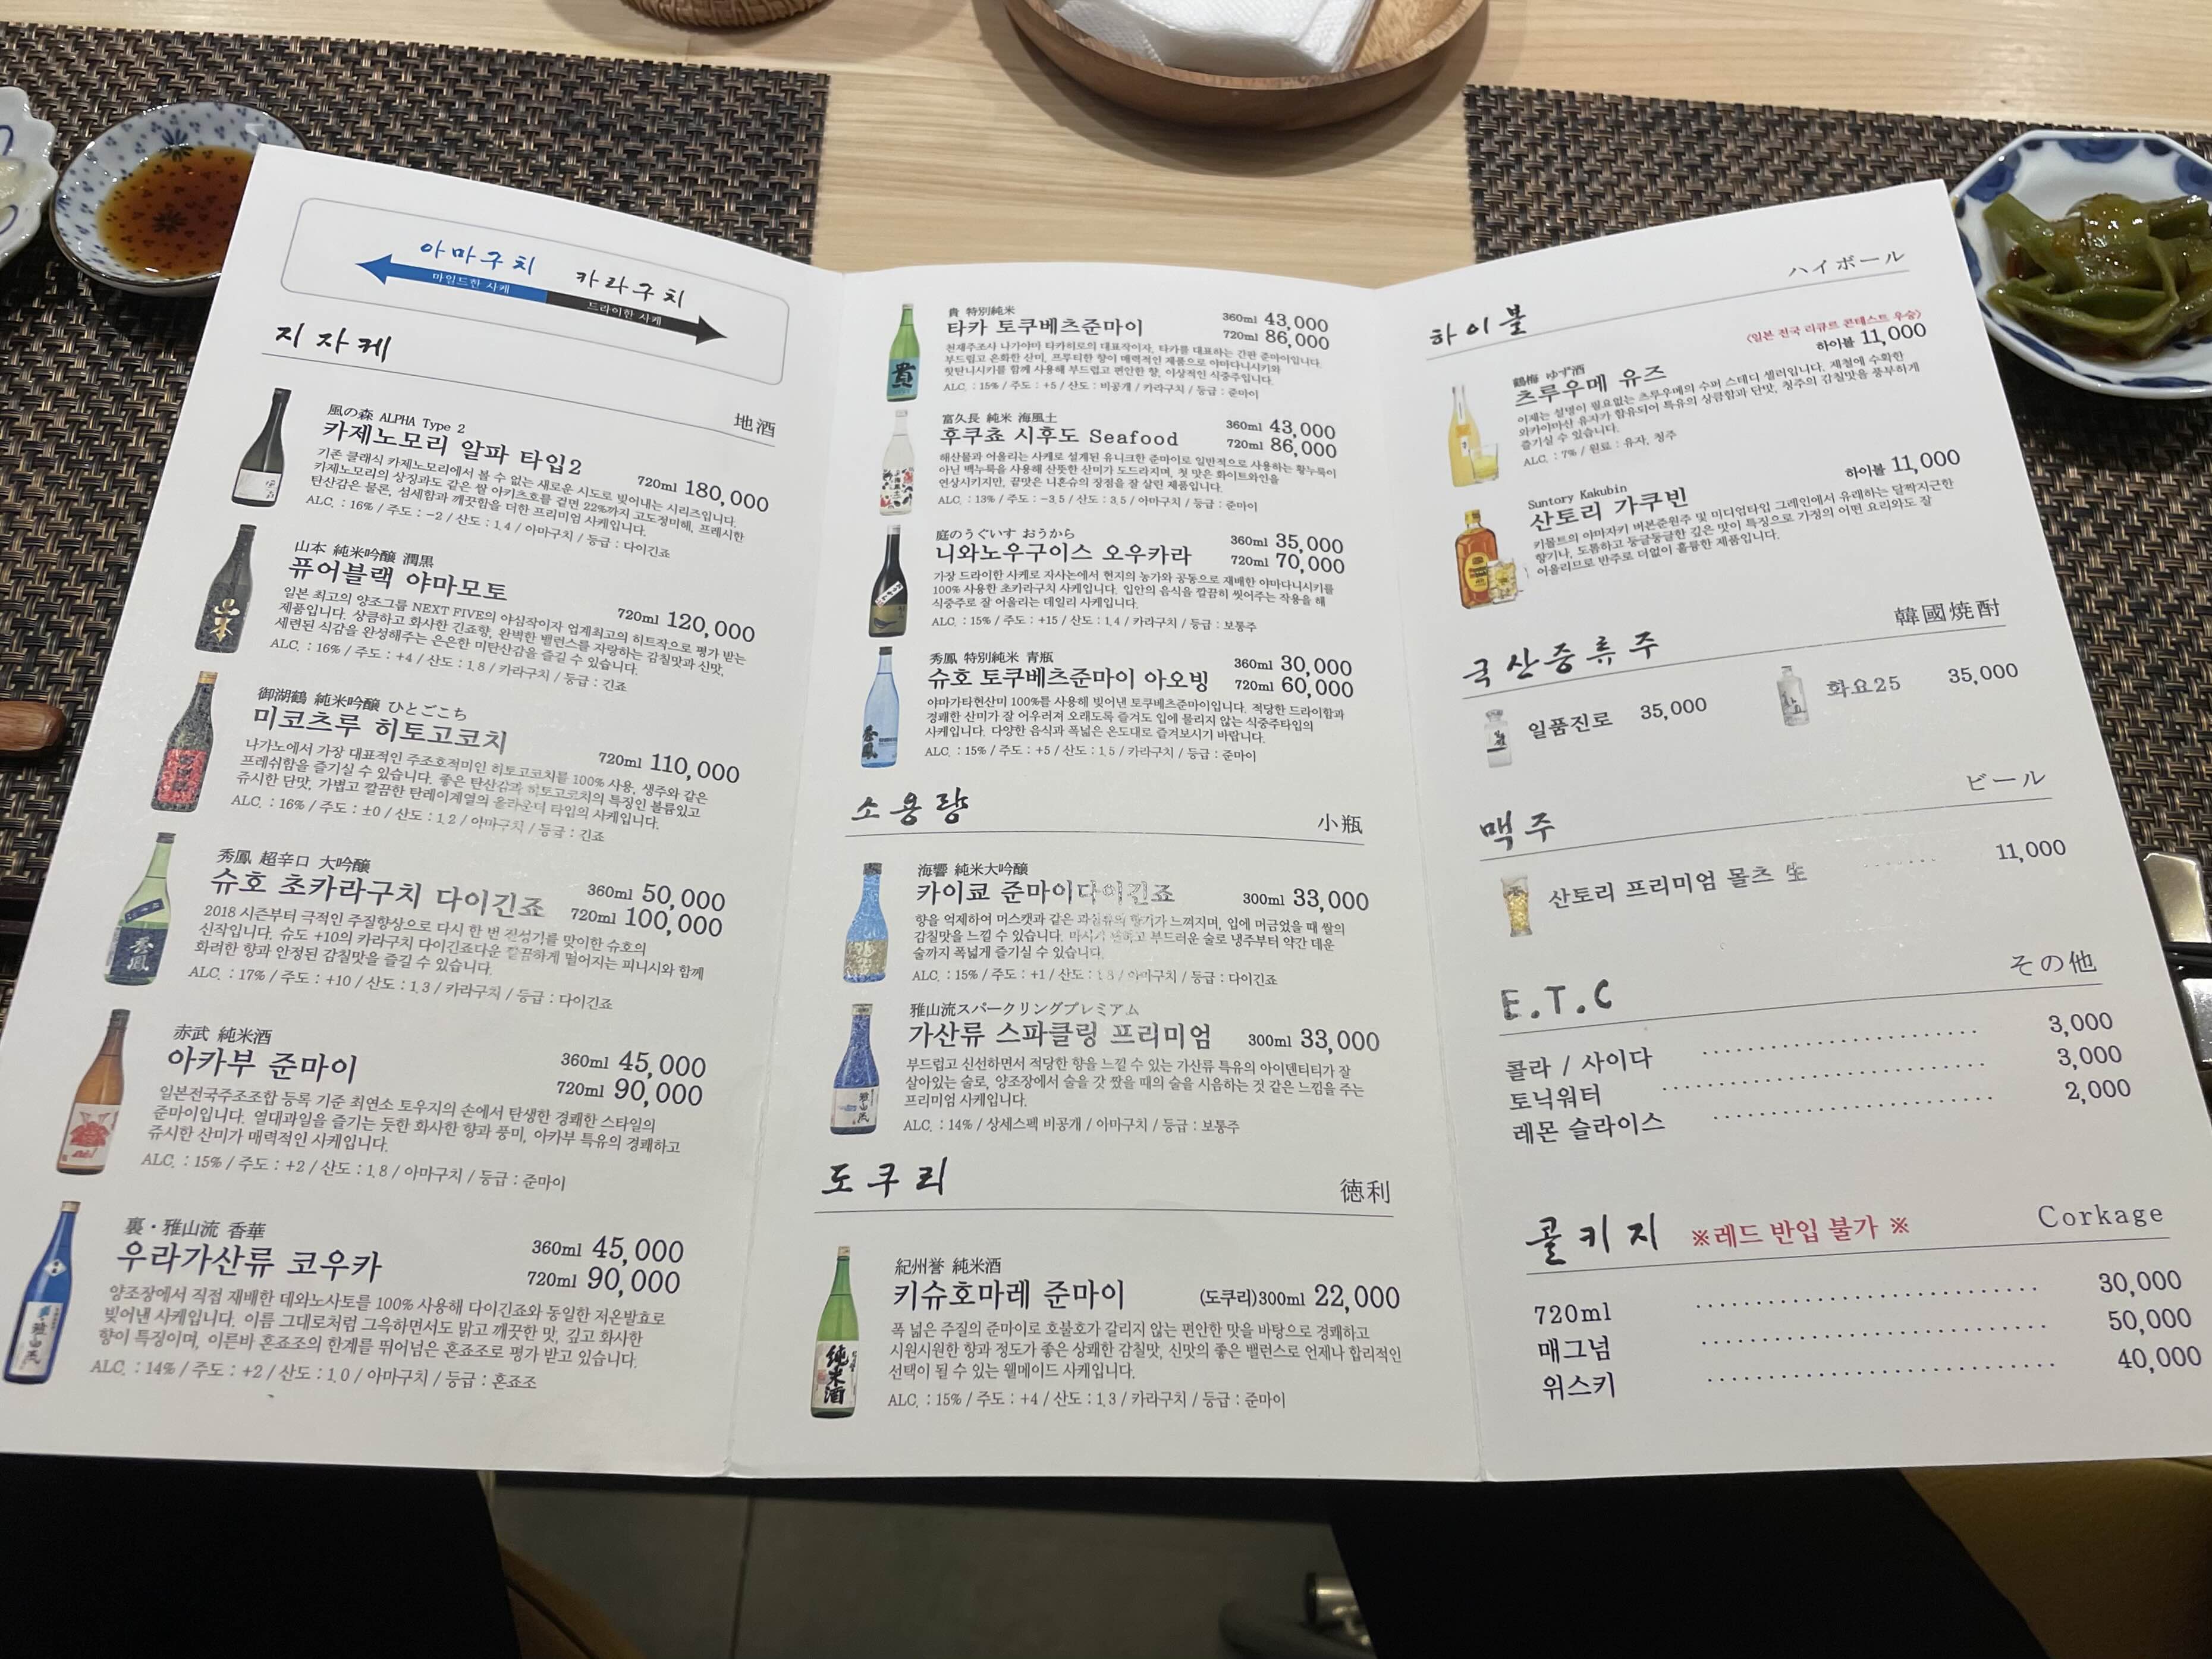 아마구치
카라구치
마일드한 사케
드라이한 사케
지자케
地酒
風の森 ALPHA Type 2
카제노모리 알파 타입2
720ml 180,000
기존 클래식 카제노모리에서 볼 수 없는 새로운 시도로 빚어내는 시리즈입니다.
카제노모리의 상징과도 같은 쌀 아키츠호를 겉면 22%까지 고도정미해, 프레시한
탄산감은 물론, 섬세함과 깨끗함을 더한 프리미엄 사케입니다.
ALC. : 16% / 주도 : -2 / 산도 : 1.4 / 아마구치 / 등급 : 다이긴죠
山本 純米吟醸 潤黒
퓨어블랙 야마모토
720ml 120,000
일본 최고의 양조그룹 NEXT FIVE의 야심작이자 업계최고의 히트작으로 평가 받는
제품입니다. 상큼하고 화사한 긴죠향, 완벽한 밸런스를 자랑하는 감칠맛과 신맛,
세련된 식감을 완성해주는 은은한 미탄산감을 즐길 수 있습니다.
ALC. : 16% / 주도 : +4 / 산도 : 1.8 / 카라구치 / 등급 : 긴죠
御湖鶴 純米吟醸 ひとごこち
미코츠루 히토고코치
720ml 110,000
나가노에서 가장 대표적인 주조호적미인 히토고코치를 100% 사용, 생주와 같은
프레쉬함을 즐기실 수 있습니다. 좋은 탄산감과 히토고코치의 특징인 볼륨있고
쥬시한 단맛, 가볍고 깔끔한 탄레이계열의 올라운더 타입의 사케입니다.
ALC. : 16% / 주도 : ±0 / 산도 : 1.2 / 아마구치 / 등급 : 긴죠
秀鳳 超辛口 大吟醸
슈호 초카라구치 다이긴죠
360ml 50,000
720ml 100,000
2018 시즌부터 극적인 주질향상으로 다시 한 번 전성기를 맞이한 슈호의
신작입니다. 슈도 +10의 카라구치 다이긴죠다운 깔끔하게 떨어지는 피니시와 함께
화려한 향과 안정된 감칠맛을 즐길 수 있습니다.
ALC. : 17% / 주도 : +10 / 산도 : 1.3 / 카라구치 / 등급 : 다이긴죠
赤武 純米酒
아카부 준마이
360ml 45,000
720ml 90,000
일본전국주조조합 등록 기준 최연소 토우지의 손에서 탄생한 경쾌한 스타일의
준마이입니다. 열대과일을 즐기는 듯한 화사한 향과 풍미, 아카부 특유의 경쾌하고
쥬시한 산미가 매력적인 사케입니다.
ALC. : 15% / 주도 : +2 / 산도 : 1.8 / 아마구치 / 등급 : 준마이
裏・雅山流 香華
우라가산류 코우카
360ml 45,000
720ml 90,000
양조장에서 직접 재배한 데와노사토를 100% 사용해 다이긴죠와 동일한 저온발효로
빚어낸 사케입니다. 이름 그대로처럼 그윽하면서도 맑고 깨끗한 맛, 깊고 화사한
향이 특징이며, 이른바 혼죠조의 한계를 뛰어넘은 혼죠조로 평가 받고 있습니다.
ALC. : 14% / 주도 : +2 / 산도 : 1.0 / 아마구치 / 등급 : 혼죠조
貴 特別純米
타카 토쿠베츠준마이
360ml 43,000
720ml 86,000
천재주조사 나가야마 타카히로의 대표작이자, 타카를 대표하는 간판 준마이입니다.
부드럽고 온화한 산미, 프루티한 향이 매력적인 제품으로 야마다니시키와
핫탄니시키를 함께 사용해 부드럽고 편안한 향, 이상적인 식중주입니다.
ALC. : 15% / 주도 : +5 / 산도 : 비공개 / 카라구치 / 등급 : 준마이
富久長 純米 海風土
후쿠쵸 시후도 Seafood
360ml 43,000
720ml 86,000
해산물과 어울리는 사케로 설계된 유니크한 준마이로 일반적으로 사용하는 황누룩이
아닌 백누룩을 사용해 산뜻한 산미가 도드라지며, 첫 맛은 화이트와인을
연상시키지만, 끝맛은 니혼슈의 장점을 잘 살린 제품입니다.
ALC. : 13% / 주도 : -3.5 / 산도 : 3.5 / 아마구치 / 등급 : 준마이
庭のうぐいす おうから
니와노우구이스 오우카라
360ml 35,000
720ml 70,000
가장 드라이한 사케로 자사논에서 현지의 농가와 공동으로 재배한 야마다니시키를
100% 사용한 초카라구치 사케입니다. 입안의 음식을 깔끔히 씻어주는 작용을 해
식중주로 잘 어울리는 데일리 사케입니다.
ALC. : 15% / 주도 : +15 / 산도 : 1.4 / 카라구치 / 등급 : 보통주
秀鳳 特別純米 青瓶
슈호 토쿠베츠준마이 아오빙
360ml 30,000
720ml 60,000
야마가타현산미 100%를 사용해 빚어낸 토쿠베츠준마이입니다. 적당한 드라이함과
경쾌한 산미가 잘 어우러져 오래도록 즐겨도 입에 물리지 않는 식중주타입의
사케입니다. 다양한 음식과 폭넓은 온도대로 즐겨보시기 바랍니다.
ALC. : 15% / 주도 : +5 / 산도 : 1.5 / 카라구치 / 등급 : 준마이
소용량
小瓶
海響 純米大吟醸
카이쿄 준마이다이긴죠
300ml 33,000
향을 억제하여 머스캣과 같은 과실류의 향기가 느껴지며, 입에 머금었을 때 쌀의
감칠맛을 느낄 수 있습니다. 마시기 편하고 부드러운 술로 냉주부터 약간 데운
술까지 폭넓게 즐기실 수 있습니다.
ALC. : 15% / 주도 : +1 / 산도 : / 아마구치 / 등급 : 다이긴죠
雅山流スパークリングプレミアム
가산류 스파클링 프리미엄
300ml 33,000
부드럽고 신선하면서 적당한 향을 느낄 수 있는 가산류 특유의 아이덴티티가 잘
살아있는 술로, 양조장에서 술을 갓 짰을 때의 술을 시음하는 것 같은 느낌을 주는
프리미엄 사케입니다.
ALC. : 14% / 상세스펙 비공개 / 아마구치 / 등급 : 보통주
도쿠리
徳利
紀州誉 純米酒
키슈호마레 준마이
(도쿠리)300ml 22,000
폭 넓은 주질의 준마이로 호불호가 갈리지 않는 편안한 맛을 바탕으로 경쾌하고
시원시원한 향과 정도가 좋은 상쾌한 감칠맛, 신맛의 좋은 밸런스로 언제나 합리적인
선택이 될 수 있는 웰메이드 사케입니다.
ALC. : 15% / 주도 : +4 / 산도 : 1.3 / 카라구치 / 등급 : 준마이
하이볼
ハイボール
〈일본 전국 리큐르 콘테스트 우승〉
鶴梅 ゆず酒
츠루우메 유즈
하이볼 11,000
이제는 설명이 필요없는 츠루우메의 수퍼 스테디 셀러입니다. 제철에 수확한
와카야마산 유자가 함유되어 특유의 상큼함과 단맛, 청주의 감칠맛을 풍부하게
즐기실 수 있습니다.
ALC. : 7% / 원료 : 유자, 청주
Suntory Kakubin
산토리 가쿠빈
하이볼 11,000
키몰트의 야마자키 버본준원주 및 미디엄타입 그레인에서 유래하는 달짝지근한
향기나, 도톰하고 둥글둥글한 깊은 맛이 특징으로 가정의 어떤 요리와도 잘
어울리므로 반주로 더없이 훌륭한 제품입니다.
국산증류주
韓國焼酎
일품진로 35,000
화요25 35,000
맥주
ビール
산토리 프리미엄 몰츠 生 11,000
E.T.C
その他
콜라 / 사이다 3,000
토닉워터 3,000
레몬 슬라이스 2,000
콜키지 ※레드 반입 불가 ※
Corkage
720ml 30,000
매그넘 50,000
위스키 40,000